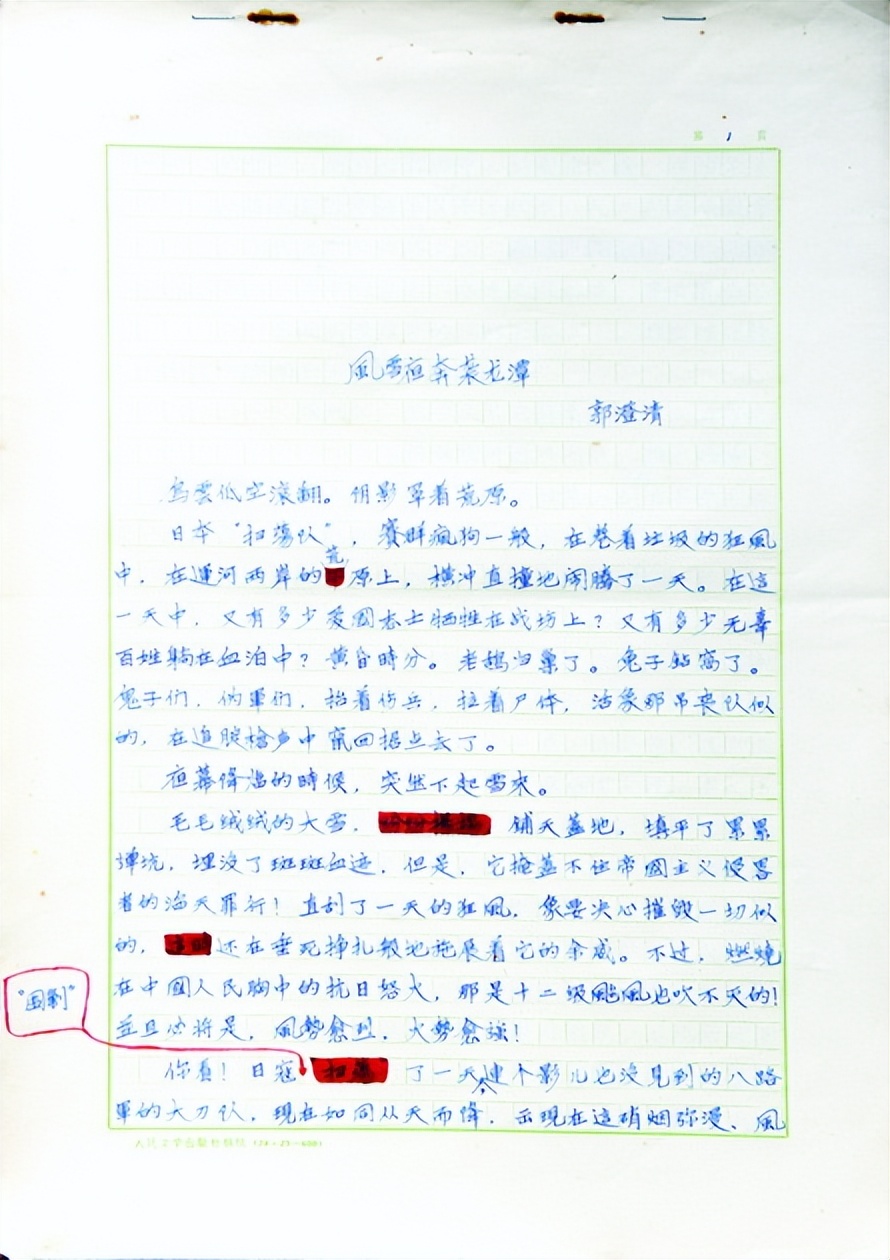 第 1 页
風雪夜奔袭龙潭
郭澄清
乌雲低空滚翻。阴影罩着荒原。
日本“扫荡队”，賽群疯狗一般，在卷着垃圾的狂風
荒
中，在運河两岸的原上，横冲直撞地闹腾了一天。在這
一天中，又有多少爱國志士牺牲在战坊上？又有多少无辜
百姓躺在血泊中？黄昏時分。老鸹归巢了。兔子钻窩了。
鬼子们，伪軍们，抬着伤兵，拉着尸体，活象那吊丧队似
的，在追腚槍声中竄回据点去了。
夜幕降临的時候，突然下起雪來。
毛毛绒绒的大雪，铺天盖地，填平了累累
弹坑，埋没了斑斑血迹，但是，它掩盖不住帝國主义侵畧
者的滔天罪行！直刮了一天的狂風，像要决心摧毁一切似
的，还在垂死掙扎般地施展着它的余威。不过，燃燒
在中國人民胸中的抗日怒火，那是十二级颱風也吹不灭的！
並且必将是，風勢愈烈，火勢愈强！
“围剿”
你看！日寇了一天連个影儿也没見到的八路
軍的大刀队，現在如同从天而降，出現在這硝烟弥漫、風
人民文学出版社稿纸